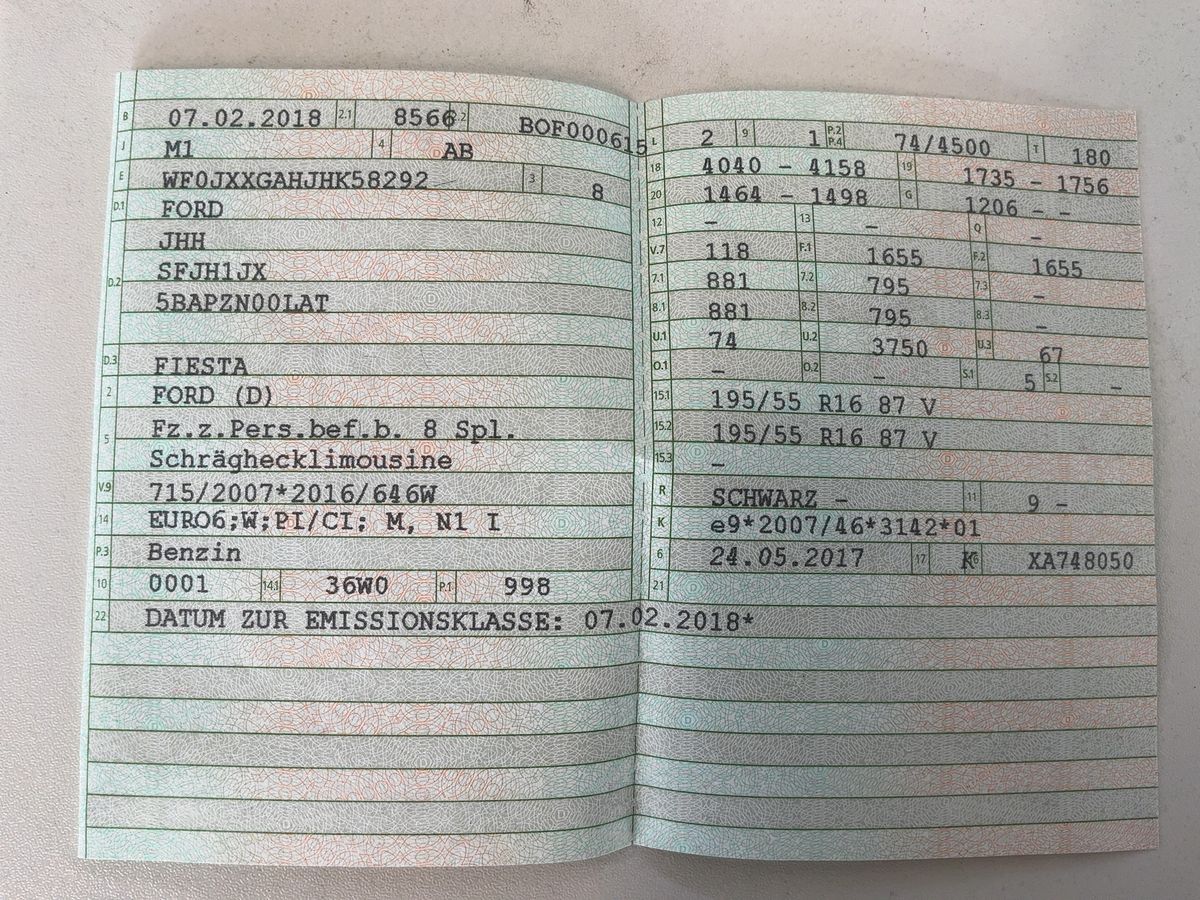 B 07.02.2018 2.1 8566 2.2 BOF000615
J M1 4 AB
E WF0JXXGAHJHK58292 3 8
D.1 FORD
JHH
D.2 SFJH1JX
5BAPZN00LAT
D.3 FIESTA
2 FORD (D)
5 Fz.z.Pers.bef.b. 8 Spl.
Schräghecklimousine
V.9 715/2007*2016/646W
14 EURO6;W;PI/CI; M, N1 I
P.3 Benzin
10 0001 14.1 36W0 P.1 998
22 DATUM ZUR EMISSIONSKLASSE: 07.02.2018*
L 2 9 1 P.2 P.4 74/4500 T 180
18 4040 - 4158 19 1735 - 1756
20 1464 - 1498 G 1206 - -
12 - 13 - Q -
V.7 118 F.1 1655 F.2 1655
7.1 881 7.2 795 7.3 -
8.1 881 8.2 795 8.3 -
U.1 74 U.2 3750 U.3 67
O.1 - O.2 - S.1 5 S.2 -
15.1 195/55 R16 87 V
15.2 195/55 R16 87 V
15.3 -
R SCHWARZ - 11 9 -
K e9*2007/46*3142*01
6 24.05.2017 17 K 16 XA748050
21